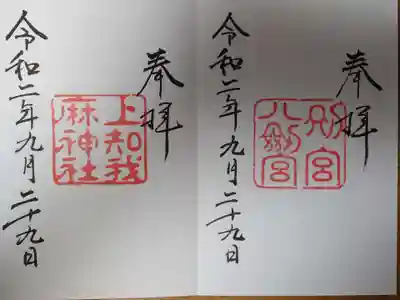 奉拝
別宮
八剣宮
令和二年九月二十九日
奉拝
上知我
麻神社
令和二年九月二十九日